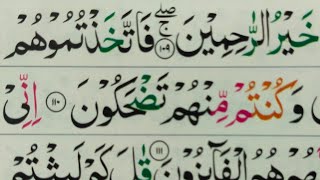 خَيْرُ الرّٰحِمِيْنَ ۝١٠٩ صلے فَاتَّخَذْتُمُوْهُمْ
وَ كُنْتُمْ مِّنْهُمْ تَضْحَكُوْنَ ۝١١٠ اِنِّیْ
هُمُ الْفَآىِٕزُوْنَ ۝١١١ قٰلَ كَمْ لَبِثْتُمْ